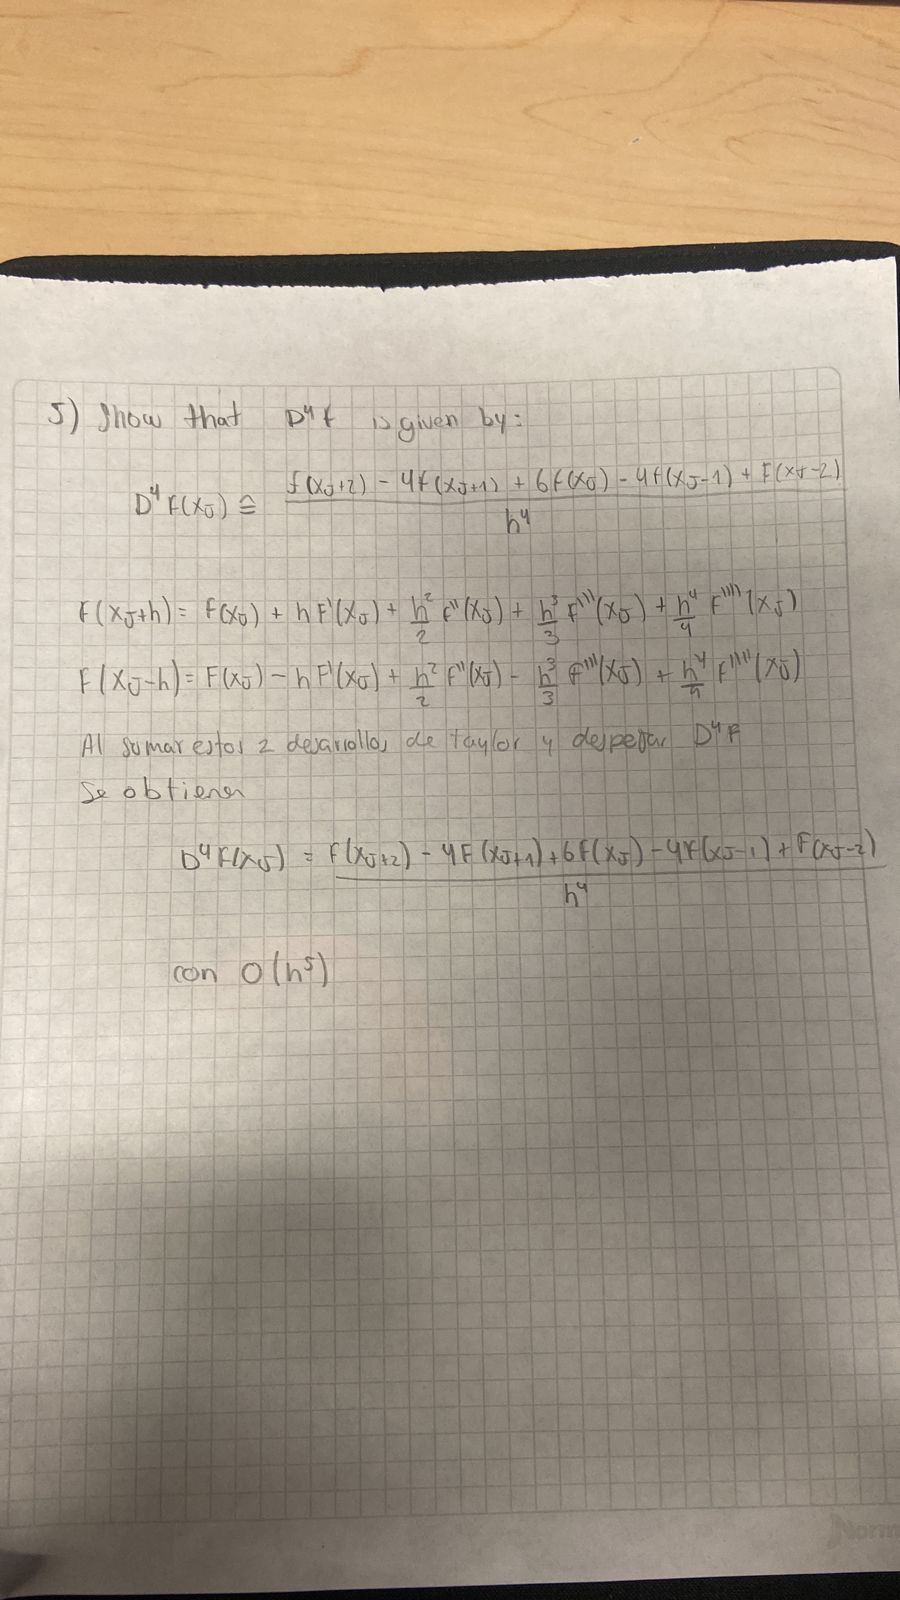 5) Show that D⁴f is given by:
D⁴F(xJ) ≅ f(xJ+2) - 4f(xJ+1) + 6f(xJ) - 4f(xJ-1) + F(xJ-2)
h⁴
F(xJ+h) = F(xJ) + h F'(xJ) + h²/2 F''(xJ) + h³/3 F'''(xJ) + h⁴/4 F''''(xJ)
F(xJ-h) = F(xJ) - h F'(xJ) + h²/2 F''(xJ) - h³/3 F'''(xJ) + h⁴/4 F''''(xJ)
Al sumar estos 2 desarollos de taylor y despejar D⁴F
Se obtienen
D⁴F(xJ) = F(xJ+2) - 4F(xJ+1) + 6F(xJ) - 4F(xJ-1) + F(xJ-2)
h⁴
con O(h⁵)
Norm